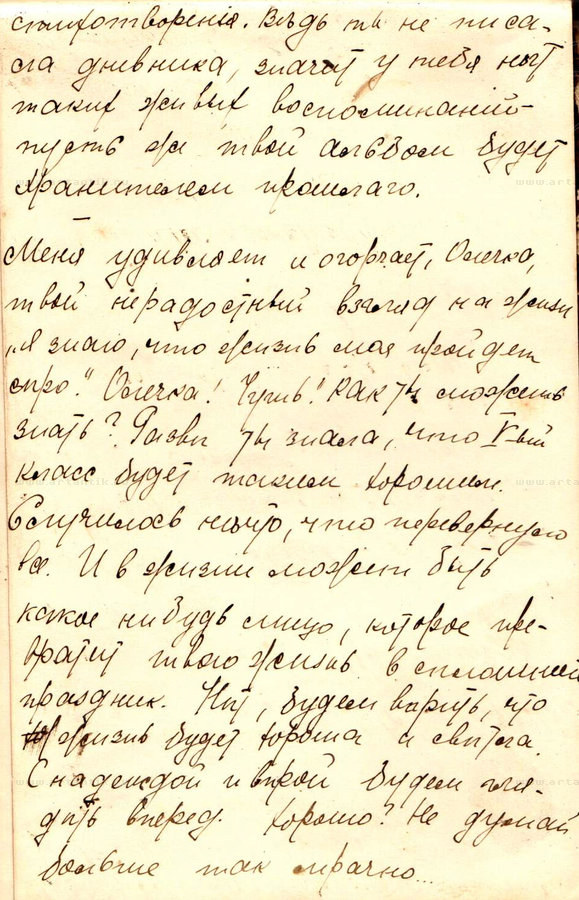 стихотворенія. Вѣдь ты не писа-
ла дневника, значит у тебя нѣт
таких живых воспоминаній
пусть же твой альбом будет
хранителем прошлаго.
Меня удивляет и огорчает, Олечка,
твой нерадостный взгляд на жизнь
„Я знаю, что жизнь моя пройдет
сѣро". Олечка! Чушь! Как ты можешь
знать? Развѣ ты знала, что V-ый
класс будет таким хорошим.
Случилось нѣчто, что перевернуло
все. И в жизни может быть
какое нибудь лицо, которое пре-
вратит твою жизнь в сплошной
праздник. Нѣт, будем вѣрить, что
жизнь будет хороша и свѣтла.
С надеждой и вѣрой будем гля-
дѣть вперед. Хорошо? Не думай
больше так мрачно...